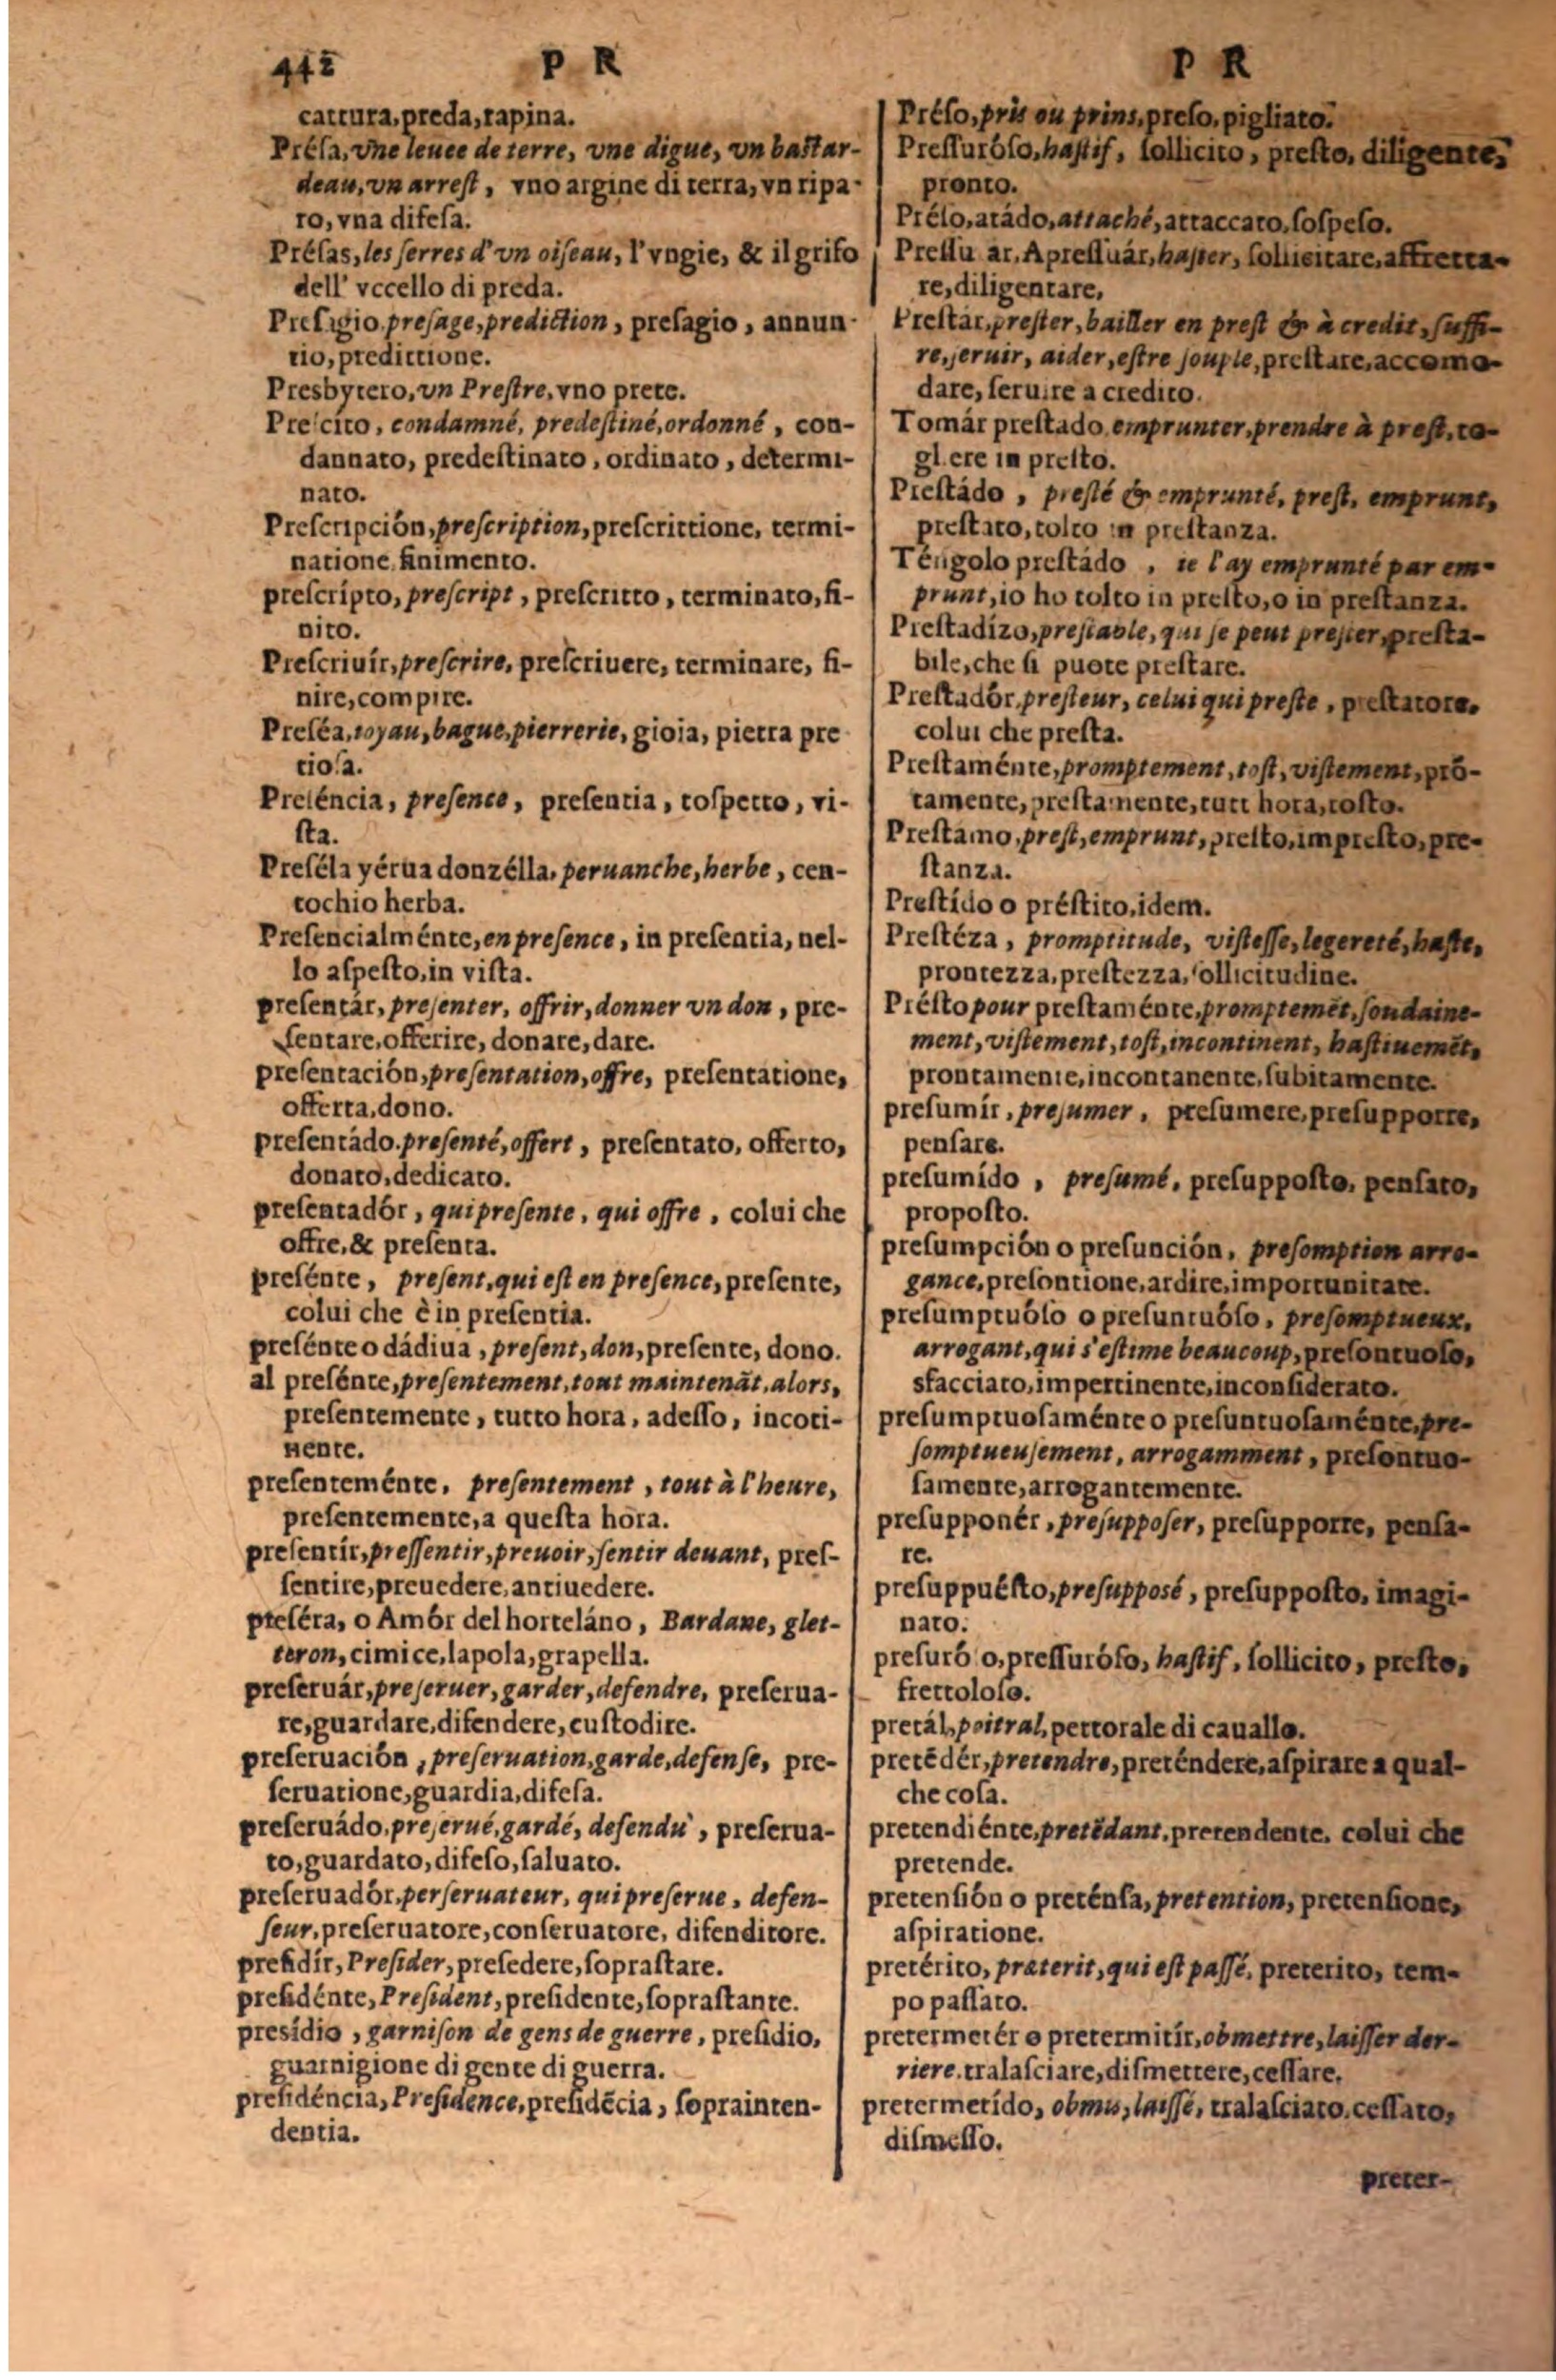 442 P R P R
cattura, preda, rapina.
Présa, vne leuee de terre, vne digue, vn bastar-
deau, vn arrest, vno argine di terra, vn ripa-
ro, vna difesa.
Présas, les serres d'vn oiseau, l'vngie, & il grifo
dell' vccello di preda.
Presagio, presage, prediction, presagio, annun-
tio, predittione.
Presbytero, vn Prestre, vno prete.
Prescito, condamné, predestiné, ordonné, con-
dannato, predestinato, ordinato, determi-
nato.
Prescripción, prescription, prescrittione, termi-
natione, finimento.
prescrípto, prescript, prescritto, terminato, fi-
nito.
Prescriuír, prescrire, prescriuere, terminare, fi-
nire, compire.
Preséa, ioyau, bague, pierrerie, gioia, pietra pre
tiosa.
Preséncia, presence, presentia, cospetto, vi-
sta.
Preséla yérua donzélla, peruanche, herbe, cen-
tochio herba.
Presencialménte, en presence, in presentia, nel-
lo aspesto, in vista.
presentár, presenter, offrir, donner vn don, pre-
sentare, offerire, donare, dare.
presentación, presentation, offre, presentatione,
offerta, dono.
presentádo. presenté, offert, presentato, offerto,
donato, dedicato.
presentadór, qui presente, qui offre, colui che
offre, & presenta.
presénte, present, qui est en presence, presente,
colui che è in presentia.
presénte o dádiua, present, don, presente, dono.
al presénte, presentement, tout maintenãt, alors,
presentemente, tutto hora, adesso, incoti-
nente.
presenteménte, presentement, tout à l'heure,
presentemente, a questa hora.
presentír, pressentir, preuoir, sentir deuant, pres-
sentire, preuedere, antiuedere.
preséra, o Amór del horteláno, Bardane, glet-
teron, cimice, lapola, grapella.
preseruár, preseruer, garder, defendre, preserua-
re, guardare, difendere, custodire.
preseruación, preseruation, garde, defense, pre-
seruatione, guardia, difesa.
preseruádo, preserué, gardé, defendu, preserua-
to, guardato, difeso, saluato.
preseruadór, perseruateur, qui preserue, defen-
seur, preseruatore, conseruatore, difenditore.
presidír, Presider, presedere, soprastare.
presidénte, President, presidente, soprastante.
presídio, garnison de gens de guerre, presidio,
guarnigione di gente di guerra.
presidéncia, Presidence, presidẽcia, soprainten-
dentia.
Préso, pris ou prins, preso, pigliato.
Pressuróso, hastif, sollicito, presto, diligente,
pronto.
Préso, atádo, attaché, attaccato, sospeso.
Pressu ar, Apressuár, haster, sollicitare, affretta-
re, diligentare,
Prestár, prester, bailler en prest & à credit, suffi-
re, seruir, aider, estre souple, prestare, accomo-
dare, seruire a credito.
Tomár prestado, emprunter, prendre à prest, to-
gliere in presto.
Prestádo, presté & emprunté, prest, emprunt,
prestato, tolto in prestanza.
Téngolo prestádo, ie l'ay emprunté par em-
prunt, io ho tolto in presto, o in prestanza.
Prestadízo, prestable, qui se peut prester, presta-
bile, che si puote prestare.
Prestadór, presteur, celui qui preste, prestatore,
colui che presta.
Prestaménte, promptement, tost, vistement, prõ-
tamente, prestamente, tutt hora, tosto.
Prestamo, prest, emprunt, presto, impresto, pre-
stanza.
Prestído o préstito, idem.
Prestéza, promptitude, vistesse, legereté, haste,
prontezza, prestezza, sollicitudine.
Présto pour prestaménte, promptemẽt, soudaine-
ment, vistement, tost, incontinent, hastiuemẽt,
prontamente, incontanente, subitamente.
presumír, presumer, presumere, presupporre,
pensare.
presumído, presumé, presupposto, pensato,
proposto.
presumpción o presunción, presomption arro-
gance, presontione, ardire, importunitate.
presumptuóso o presuntuóso, presomptueux,
arrogant, qui s'estime beaucoup, presontuoso,
sfacciato, impertinente, inconsiderato.
presumptuosaménte o presuntuosaménte, pre-
somptueusement, arrogamment, presontuo-
samente, arrogantemente.
presupponér, presupposer, presupporre, pensa-
re.
presuppuésto, presupposé, presupposto, imagi-
nato.
presuró o, pressuróso, hastif, sollicito, presto,
frettoloso.
pretál, poitral, pettorale di cauallo.
pretẽdér, pretendre, preténdere, aspirare a qual-
che cosa.
pretendiénte, pretẽdant, pretendente, colui che
pretende.
pretensión o preténsa, pretention, pretensione,
aspiratione.
pretérito, præterit, qui est passé, preterito, tem-
po passato.
pretermetér o pretermitír, obmettre, laisser der-
riere. tralasciare, dismettere, cessare.
pretermetído, obmis, laissé, tralasciato, cessato,
dismesso.
preter-